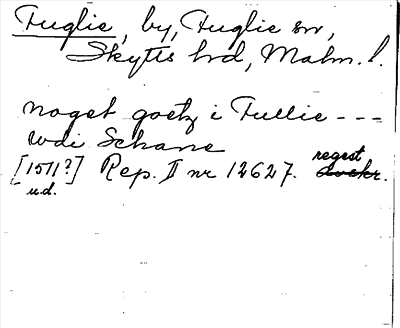 Fuglie, by, Fuglie sn,
Skytts hrd, Malm. l.
noget gotz i Fullie - - -
wdi Schane
[1511?] Rep. II nr 12627. regest
u.d.